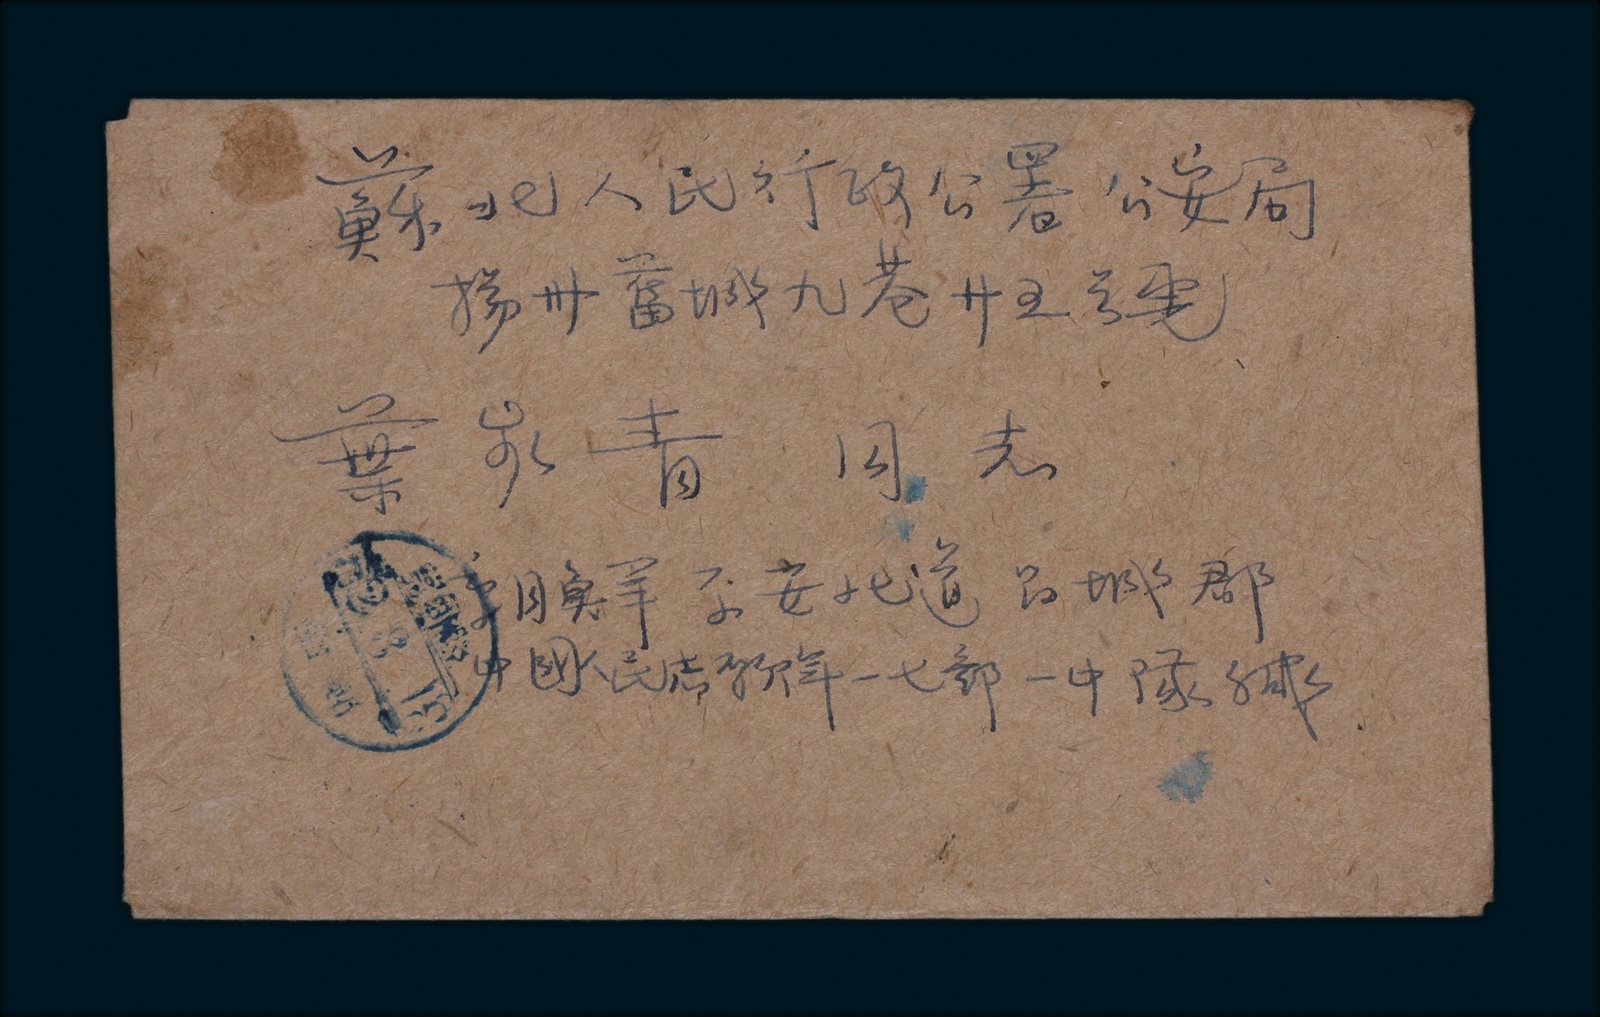 蘇北人民行政公署公安局
揚州舊城九巷廿五號
葉 青 同志
朝鮮平安北道 城郡
中國人民志願軍一七部一中隊緘